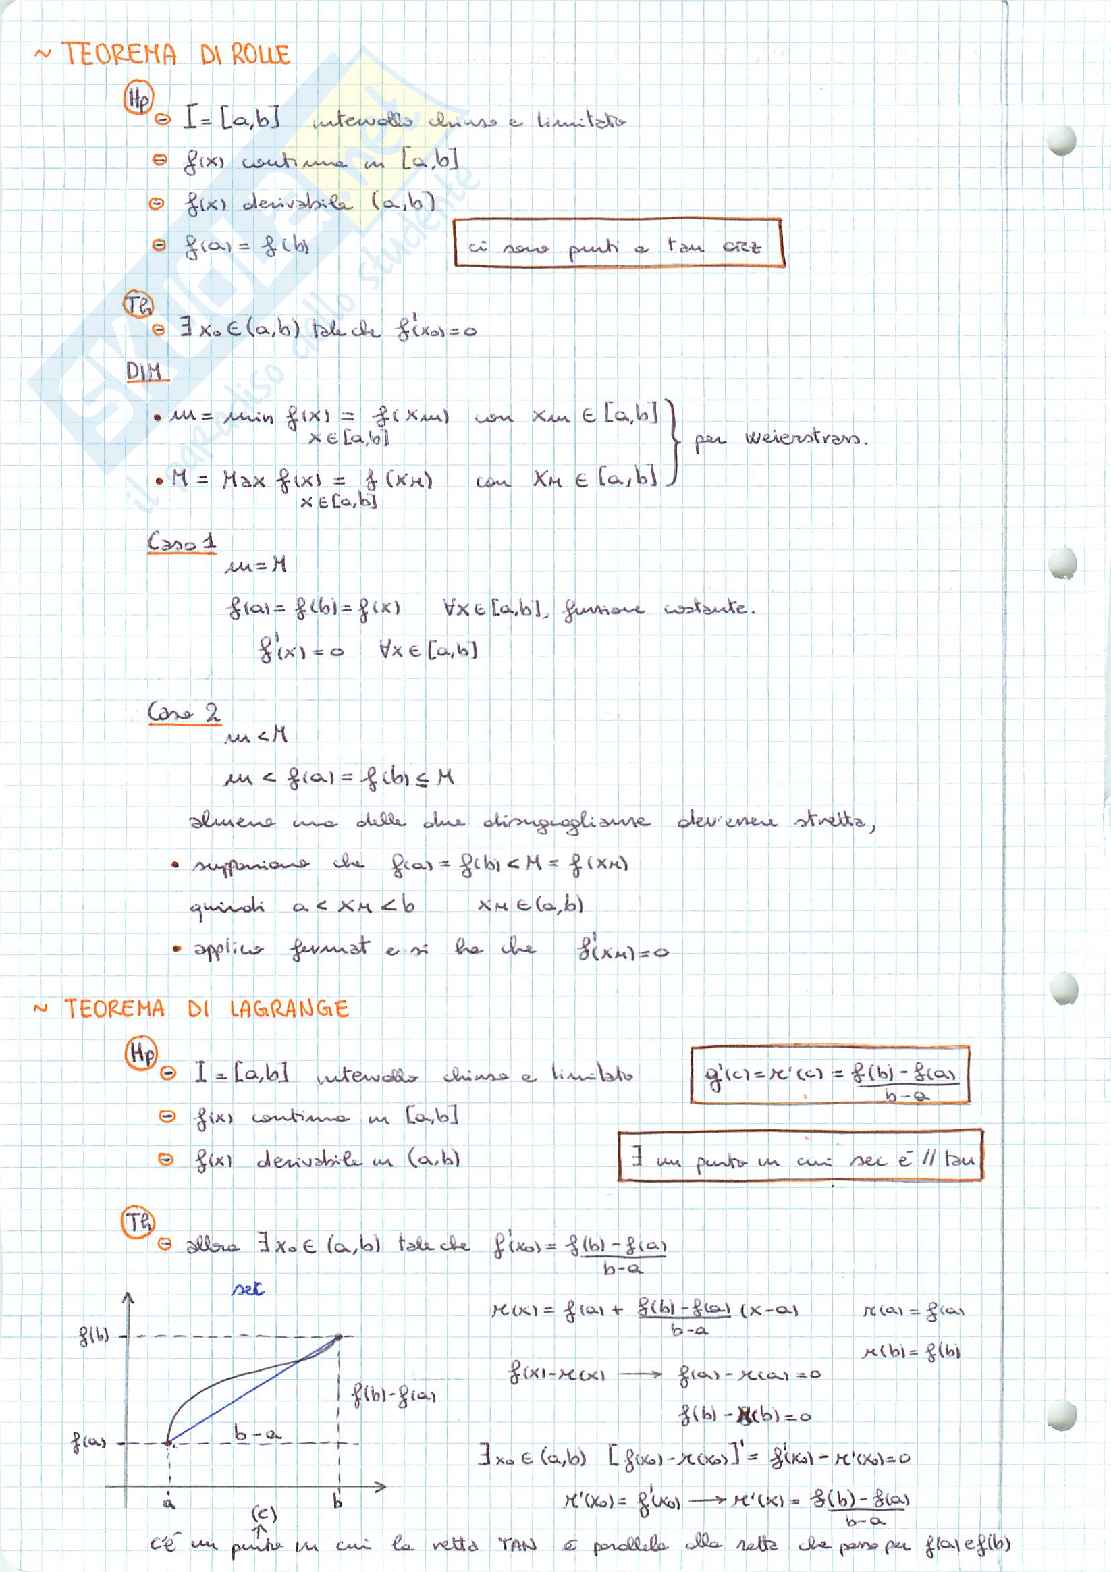 ~ TEOREMA DI ROLLE
Hp
⊖ I = [a,b] intervallo chiuso e limitato
⊖ f(x) continua in [a,b]
⊖ f(x) derivabile (a,b)
⊖ f(a) = f(b)
ci sono punti a tan orizz
Th
⊖ ∃ x₀ ∈ (a,b) tale che f'(x₀)=0
DIM
• m = min f(x) = f(xm) con xm ∈ [a,b]
x ∈ [a,b]
} per weierstrass.
• M = Max f(x) = f(xM) con xM ∈ [a,b]
x ∈ [a,b]
Caso 1
m = M
f(a) = f(b) = f(x) ∀x ∈ [a,b], funzione costante.
f'(x) = 0 ∀x ∈ [a,b]
Caso 2
m < M
m < f(a) = f(b) ≤ M
almeno una delle due disuguaglianze dev'essere stretta,
• supponiamo che f(a) = f(b) < M = f(xM)
quindi a < xM < b xM ∈ (a,b)
• applico fermat e si ha che f'(xM) = 0
~ TEOREMA DI LAGRANGE
Hp
⊖ I = [a,b] intervallo chiuso e limitato
g'(c) = r'(c) = f(b) - f(a) / b - a
⊖ f(x) continua in [a,b]
⊖ f(x) derivabile in (a,b)
∃ un punto in cui sec è // tan
Th
⊖ allora ∃ x₀ ∈ (a,b) tale che f'(x₀) = f(b) - f(a) / b - a
sec
f(b)
f(a)
f(b) - f(a)
b - a
a
b
(c)
r(x) = f(a) + f(b) - f(a) / b - a (x - a) r(a) = f(a)
r(b) = f(b)
f(x) - r(x) → f(a) - r(a) = 0
f(b) - r(b) = 0
∃ x₀ ∈ (a,b) [f(x₀) - r(x₀)]' = f'(x₀) - r'(x₀) = 0
r'(x₀) = f'(x₀) → r'(x) = f(b) - f(a) / b - a
c'è un punto in cui la retta TAN è parallela alla retta che passa per f(a) e f(b)
SKUOLA.net
il paradiso dello studente